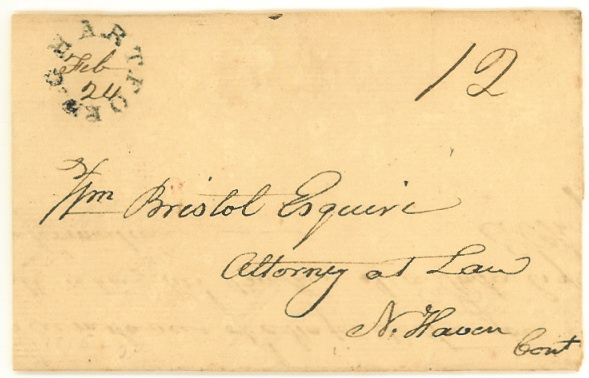 HARTFORD.C
Feb
24
12
Wm Bristol Esquire
Attorney at Law
N. Haven
Cont